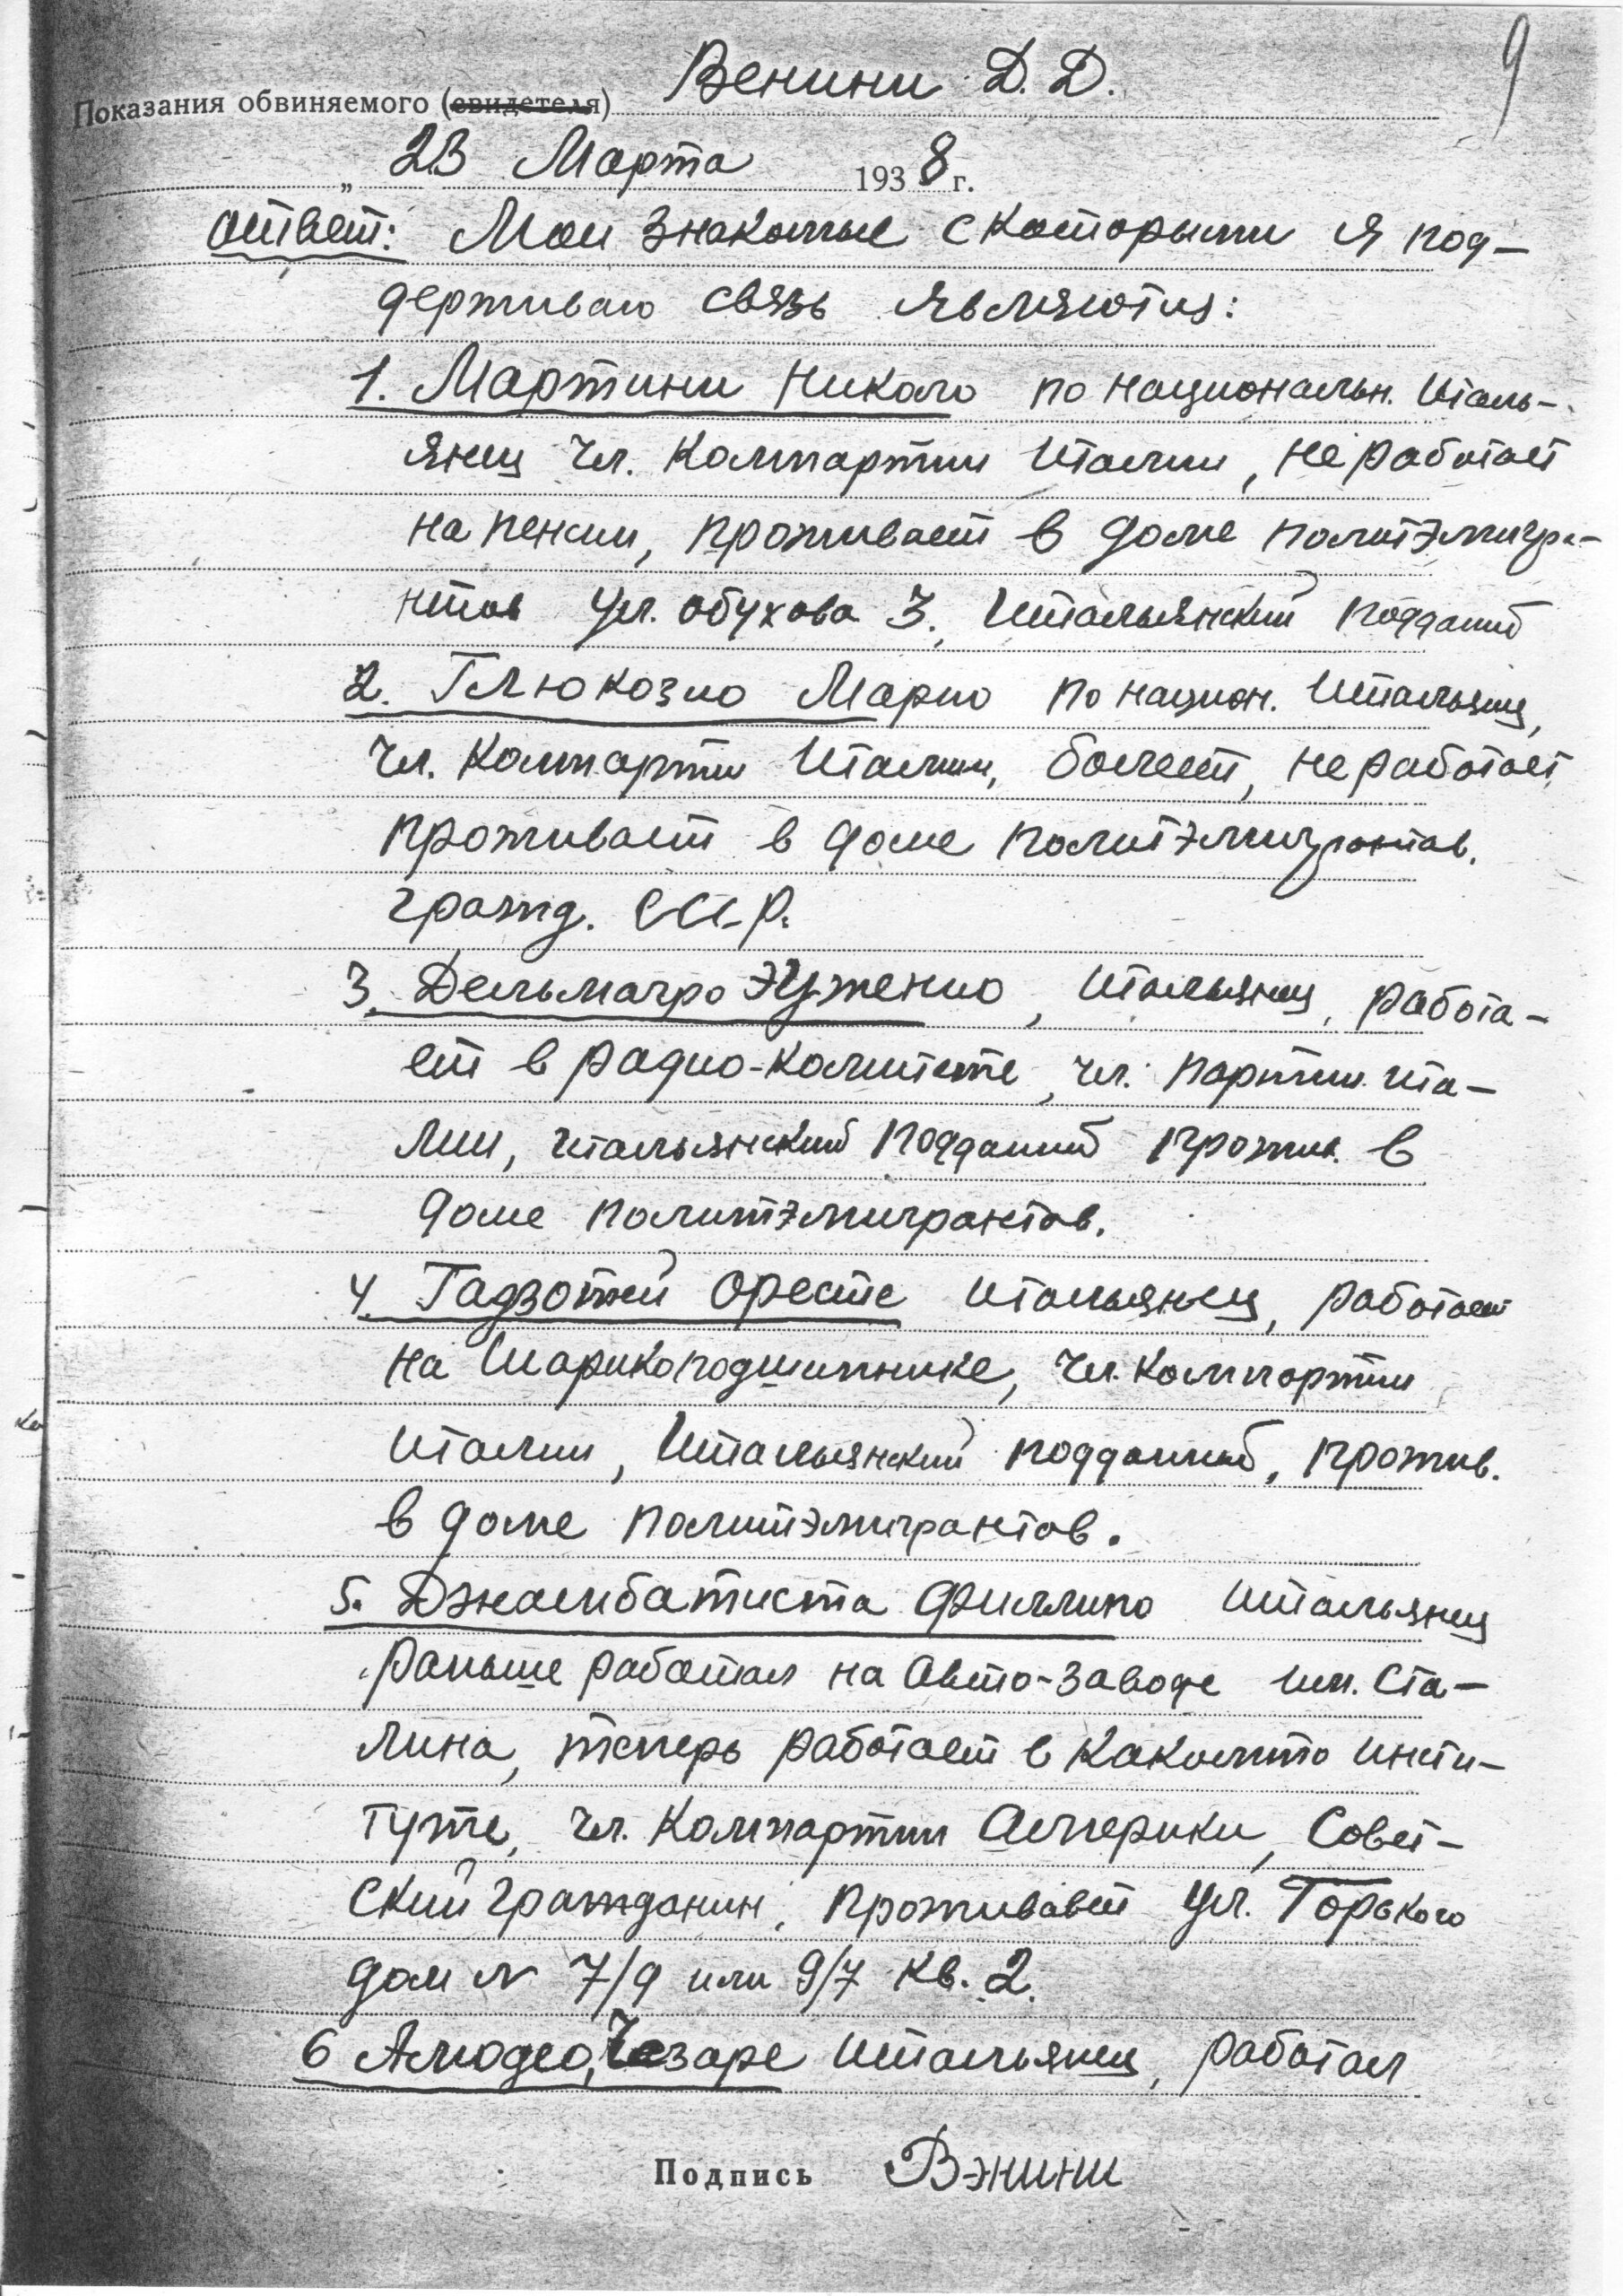 9
Показания обвиняемого (свидетеля) Венини Д. Д.
„ 23 Марта 1938 г.
Ответ: Мои знакомые с которыми я под-
держиваю связь являются:
1. Мартини Николо по национальн. италь-
янец чл. Компартии Италии, не работает
на пенсии, проживает в доме политэмигра-
нтов ул. Обухова 3. Итальянский подданый
2. Глюкозио Марио по национ. Итальянец,
чл. Компартии Италии, болеет, не работает,
проживает в доме политэмигрантов.
гражд. СССР.
3. Дельмагро Эуженио, Итальянец, работа-
ет в радио-комитете, чл. партии Ита-
лии, итальянский подданый прожив. в
доме политэмигрантов.
4. Гадзотей Оресте итальянец, работает
на Шарикоподшипнике, чл. компартии
Италии, Итальянский подданый, прожив.
в доме политэмигрантов.
5. Джамбатиста Филлипо Итальянец
раньше работал на Авто-заводе им. Ста-
лина, теперь работает в какомто инсти-
туте, чл. Компартии Америки, Совет-
ский гражданин, проживает ул. Горького
дом № 7/9 или 9/7 кв. 2.
6 Амодео, Чезаре Итальянец, работал
Подпись Вэнини